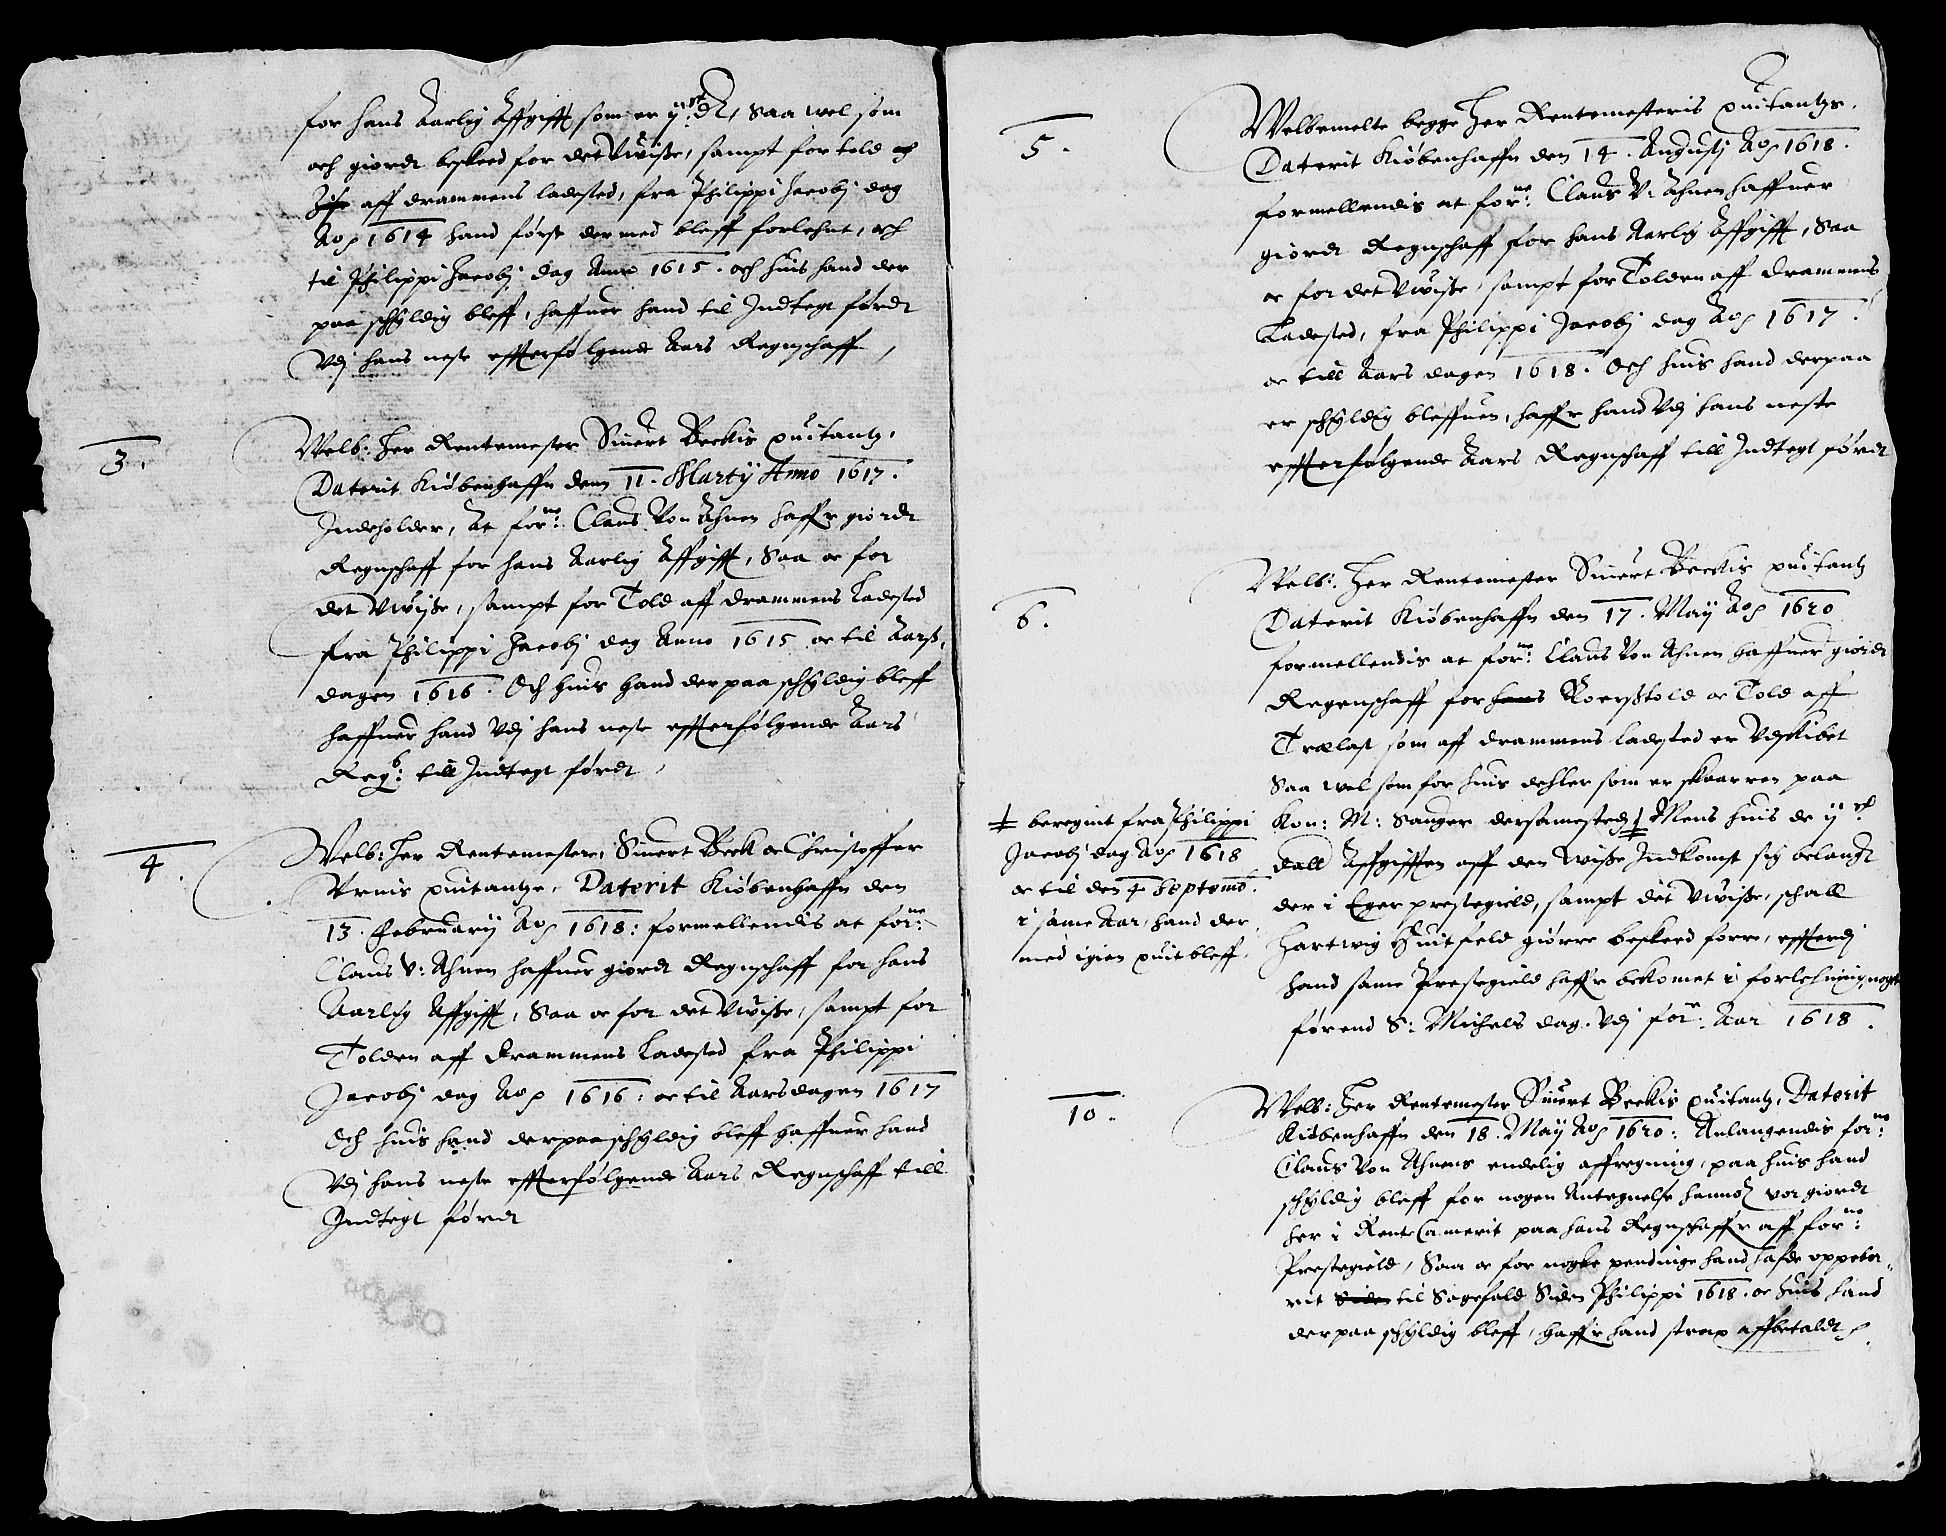 for hans Aarlig Affgifft som er ij.ᶜ dlr, saa wel som
och giordt beskeed for det Uwiße, sampt for told och
aff drammens ladested, fra Philippi Jacobj dag
Aoᵍ 1614 hand først der med bleff forlehnt, och
til Philippi Jacobj dag Anno 1615. och huis hand der
paa schyldig bleff, haffuer hand til Indtegt førdt
Udj hans neste effterfølgende Aars Regnschaff,
3.
Welb: Her Rentemester Siuert Beckis quitantz,
Daterit Kiøbenhaffn denn 11. Martij Anno 1617.
Indeholder, At forⁿᵉ: Claus Von Ahnen haffr giordt
Regnschaff for hans Aarlig Affgifft, Saa oc for
det Uwiße, sampt for Told aff drammens Ladested
fra Philippi Jacobj dag Anno 1615 oc til Aarß
dagen 1616. Och huis hand der paa schyldig bleff
haffuer hand Udj hans neste effterfølgende Aars
Regᵇ: till Indtegt førdt,
4.
Welb: Her Rentemestere, Siuert Beck oc Christoffer
Urnis quitantze, Daterit Kiøbenhaffn den
13. Februarij Aoᵍ 1618: formellendis at forⁿᵉ:
Claus V: Ahnen haffuer giordt Regnschaff for hans
Aarlig Affgifft, Saa oc for det Uwiße, sampt for
Tolden aff drammens Ladested fra Philippi
Jacobj dag Aoᵍ 1616: oc til Aarsdagen 1617
Och huis hand der paa schyldig bleff haffuer hand
Udj hans neste effterfølgende Aars Regnschaff till
Indtegt førdt
5.
Welbemelte begge Her Rentemesteris quitantze,
Daterit Kiøbenhaffn den 14. Augustj Aoᵍ 1618.
formellendis at forⁿᵉ: Claus V: Ahnen haffuer
giordt Regnschaff for hans Aarlig Affgifft, Saa
oc for det Uwiße, sampt for Tolden aff drammens
Ladested, fra Philippi Jacobj dag Aoᵍ 1617.
oc till Aars dagen 1618. Och huis hand derpaa
er schyldig bleffuen, haffr hand Udj hans neste
effterfølgende Aars Regnschaff till Indtegt førdt
6.
Welb: Her Rentemester Siuert Beckis quitantz
Daterit Kiøbenhaffn den 17. Maij Aoᵍ 1620
formellendis at forⁿᵉ: Claus Von Ahnen haffuer giordt
Regenschaff for hans Roerßtold oc Told aff
Trælast som aff drammens ladested er Udskibet
Saa wel som for huis dehler som er skaarren paa
Kon: M: Sauger dersamestedß ‡ Mens huis de ij ᶜ
dall Affgifften aff den wiße Indkomst sig belangt
der i Eger prestegield, sampt det Uwiße, schall
Hartwig Huitfeld giørre beskeed forre, effterdj
hand same Prestegield haffr bekomet i forlehning, noget
førend S: Michels dag. Udj forⁿᵉ: Aar 1618.
‡ beregnit fra Philippi
Jacobj dag Aoᵍ 1618
oc til den 4 Septemb:
i same Aar, hand der
med igien quit bleff.
10.
Welb: Her Rentemester Siuert Beckis quitantz, Daterit
Kiøbenhaffn den 18. Maij Aoᵍ 1620: Anlangendis forⁿᵉ:
Claus Von Ahnens endelig affregning, paa huis hand
schyldig bleff for nogen Antegnelse hannoᵐ var giordt
her i RenteCamerit paa hans Regnschaffr aff forⁿᵉ:
Prestegield, Saa oc for nogle pendinge hand hafde oppebor-
rit Siden til Sagefald Siden Philippi 1618. oc huis hand
der paa schyldig bleff, haffr hand strax affbetaldt.